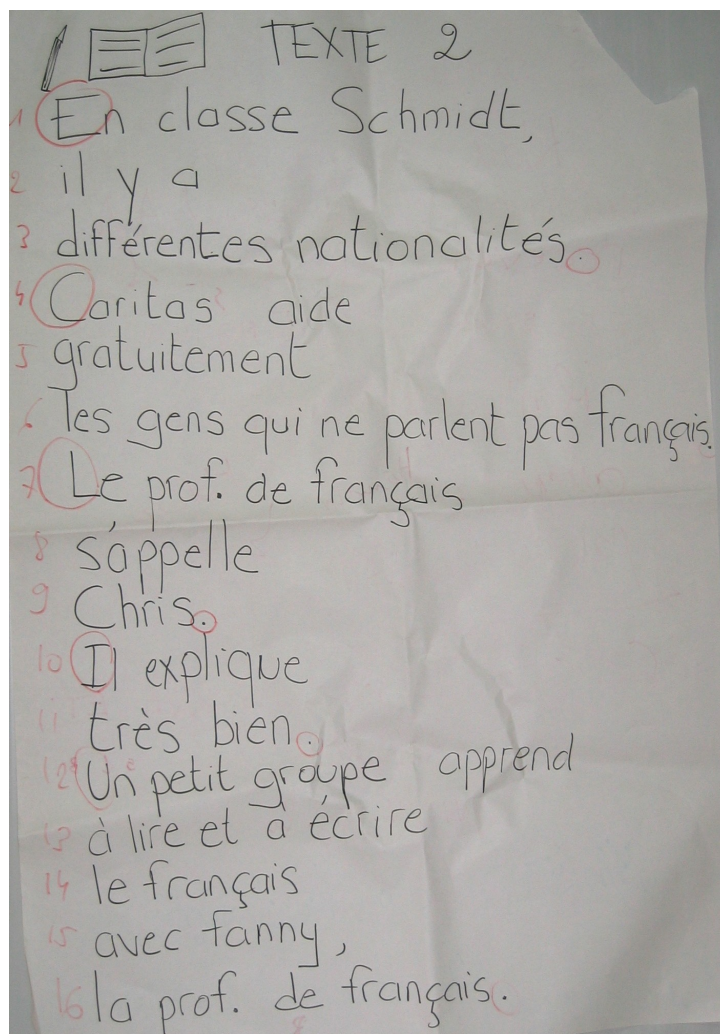 TEXTE 2
1 En classe Schmidt,
2 il y a
3 différentes nationalités.
4 Caritas aide
5 gratuitement
6 les gens qui ne parlent pas français.
7 Le prof. de français
8 s'appelle
9 Chris.
10 Il explique
11 très bien.
12 Un petit groupe apprend
13 à lire et à écrire
14 le français
15 avec fanny,
16 la prof. de français.